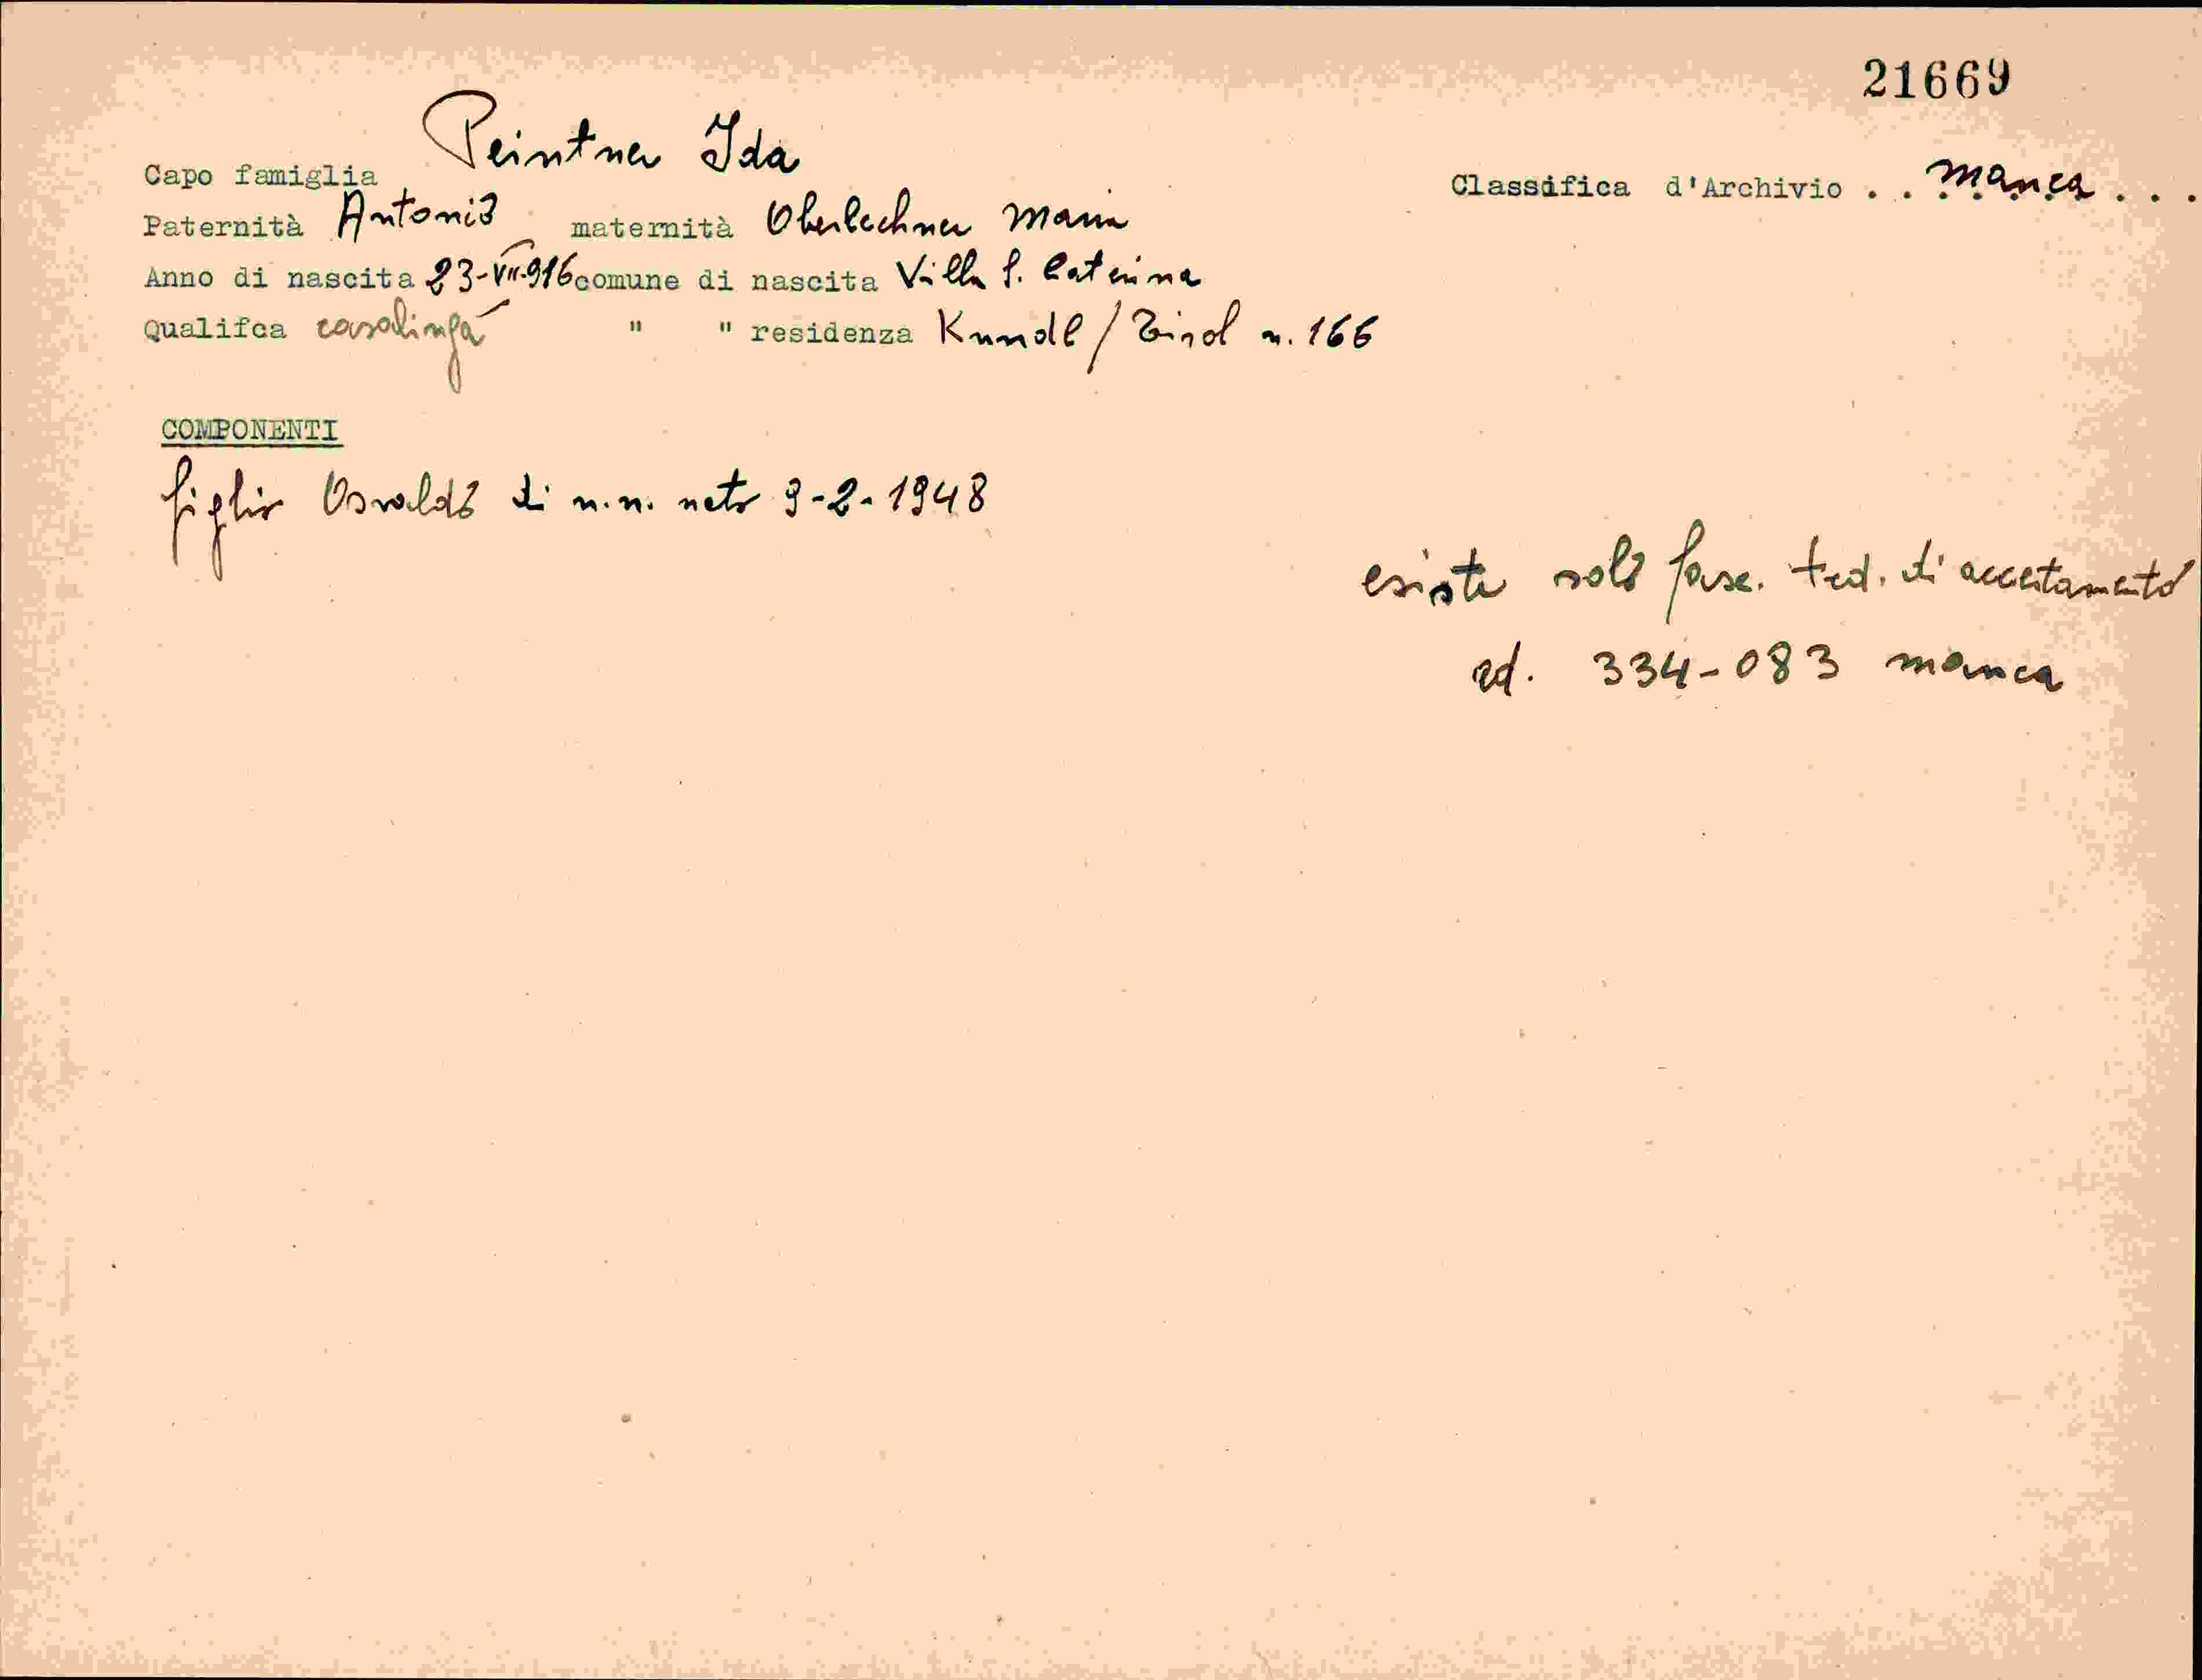 21669
Capo famiglia Peintner Ida
Classifica d'Archivio . . manca . . .
Paternità Antonio maternità Oberlechner Maria
Anno di nascita 23-VII-916 comune di nascita Villa S. Caterina
Qualifca casalinga " " residenza Kundl / Tirol n. 166
COMPONENTI
figlio Osvaldo di n.n. nato 9-2-1948
esiste solo fasc. ted. di accertamento
ad. 334-083 manca